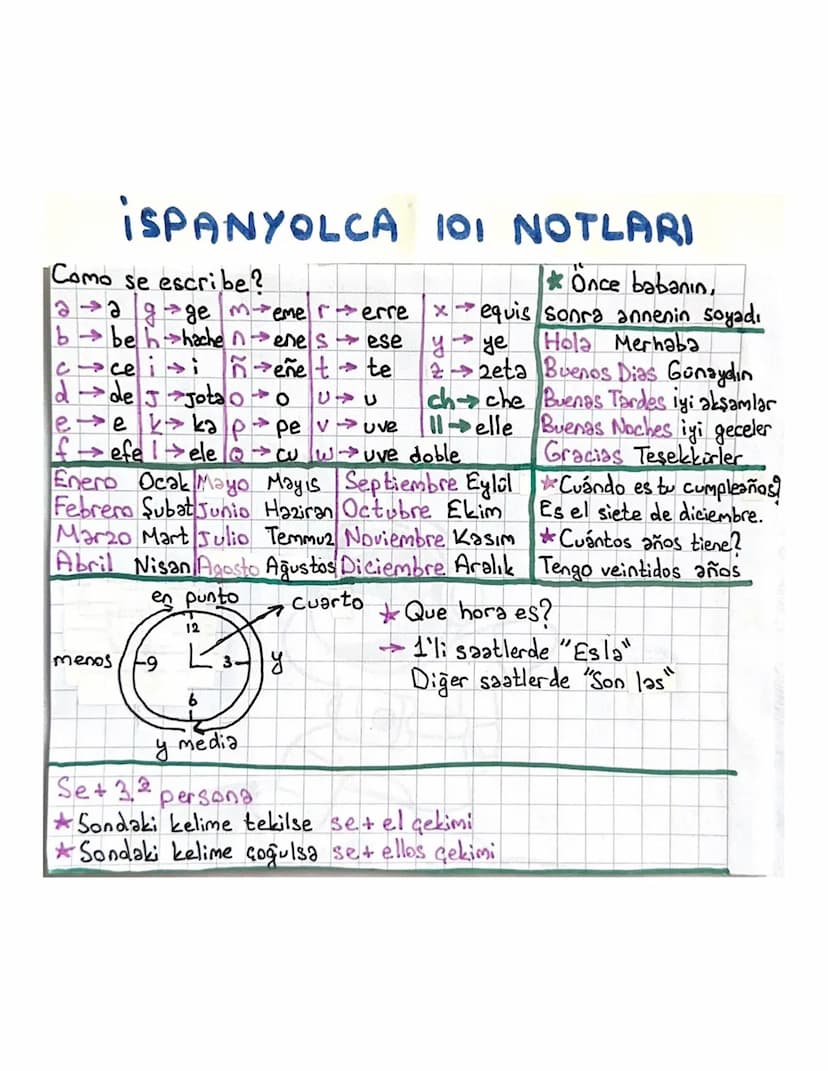 İSPANYOLCA 101 NOTLARI
Como se escribe?
a → a g → ge m → eme r → erre x → equis
b → be h → hache n → ene s → ese y → ye
c → ce i → i ñ → eñe t → te z → zeta
d → de J → Jota o → o u → u ch → che
e → e k → ka p → pe v → uve ll → elle
f → efe l → ele Q → cu w → uve doble
★ Önce babanın,
sonra annenin soyadı
Hola Merhaba
Buenos Dias Günaydın
Buenas Tardes iyi akşamlar
Buenas Noches iyi geceler
Gracias Teşekkürler
Enero Ocak Mayo Mayıs Septiembre Eylül
Febrero Şubat Junio Haziran Octubre Ekim
Marzo Mart Julio Temmuz Noviembre Kasım
Abril Nisan Agosto Ağustos Diciembre Aralık
★ Cuándo es tu cumpleaños?
Es el siete de diciembre.
★ Cuántos años tiene?
Tengo veintidos años
en punto
cuarto
12
menos 9 3 y
6
y media
★ Que hora es?
→ 1'li saatlerde "Es la"
Diğer saatlerde "Son las"
Se + 3.ª persona
★ Sondaki kelime tekilse se + el çekimi
★ Sondaki kelime çoğulsa se + ellos çekimi